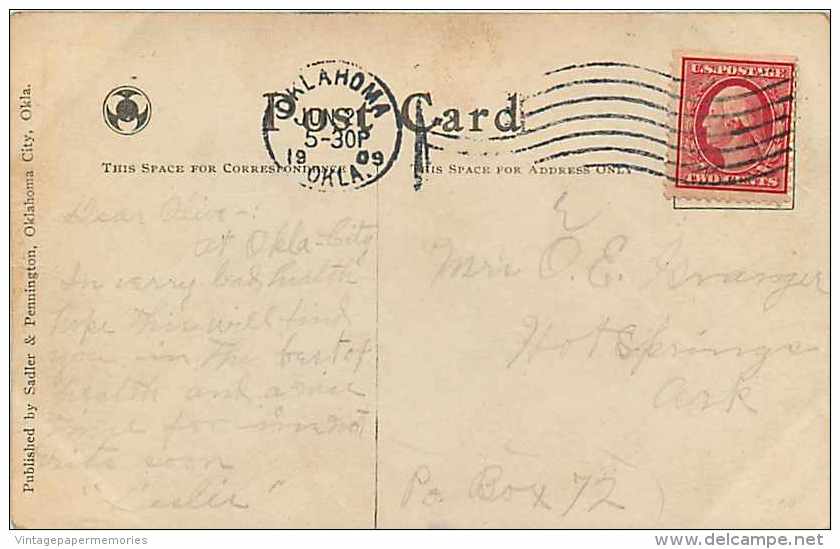 Published by Sadler & Pennington, Oklahoma City, Okla.
Post Card
OKLAHOMA
JUN 2
5-30P
1909
OKLA.
U.S. POSTAGE
TWO CENTS
THIS SPACE FOR CORRESPONDENCE
THIS SPACE FOR ADDRESS ONLY
Dear Olive-:
at Okla-City
In verry bad health
hope this will find
you in the best of
health and a nice
time for
rite soon
"Leslie"
O. E. Granger
Hot Springs
Ark
Po Box 72
Vintagepapermemories
http://www.delcampe.net